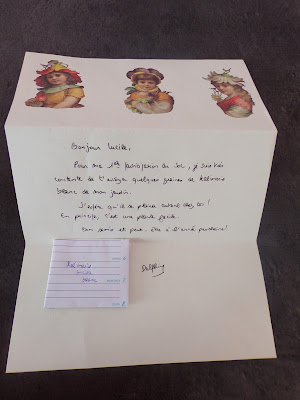 Bonjour Lucile,
Pour ma 1ère participation au Sol, je suis très
contente de t'envoyer quelques graines de
blanc de mon jardin.
J'espère qu'il se plaira autant chez toi !
En principe, c'est une plante facile.
Bon semis et peut-être à l'année prochaine !
blanc
Delphine